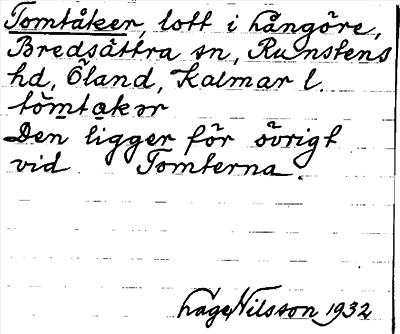 Tomtåker, lott i hångöre,
Bredsättra sn, Runstens
hd, Öland, Kalmar l.
tömtakər
Den ligger för övrigt
vid Tomterna.
håge Nilsson 1932